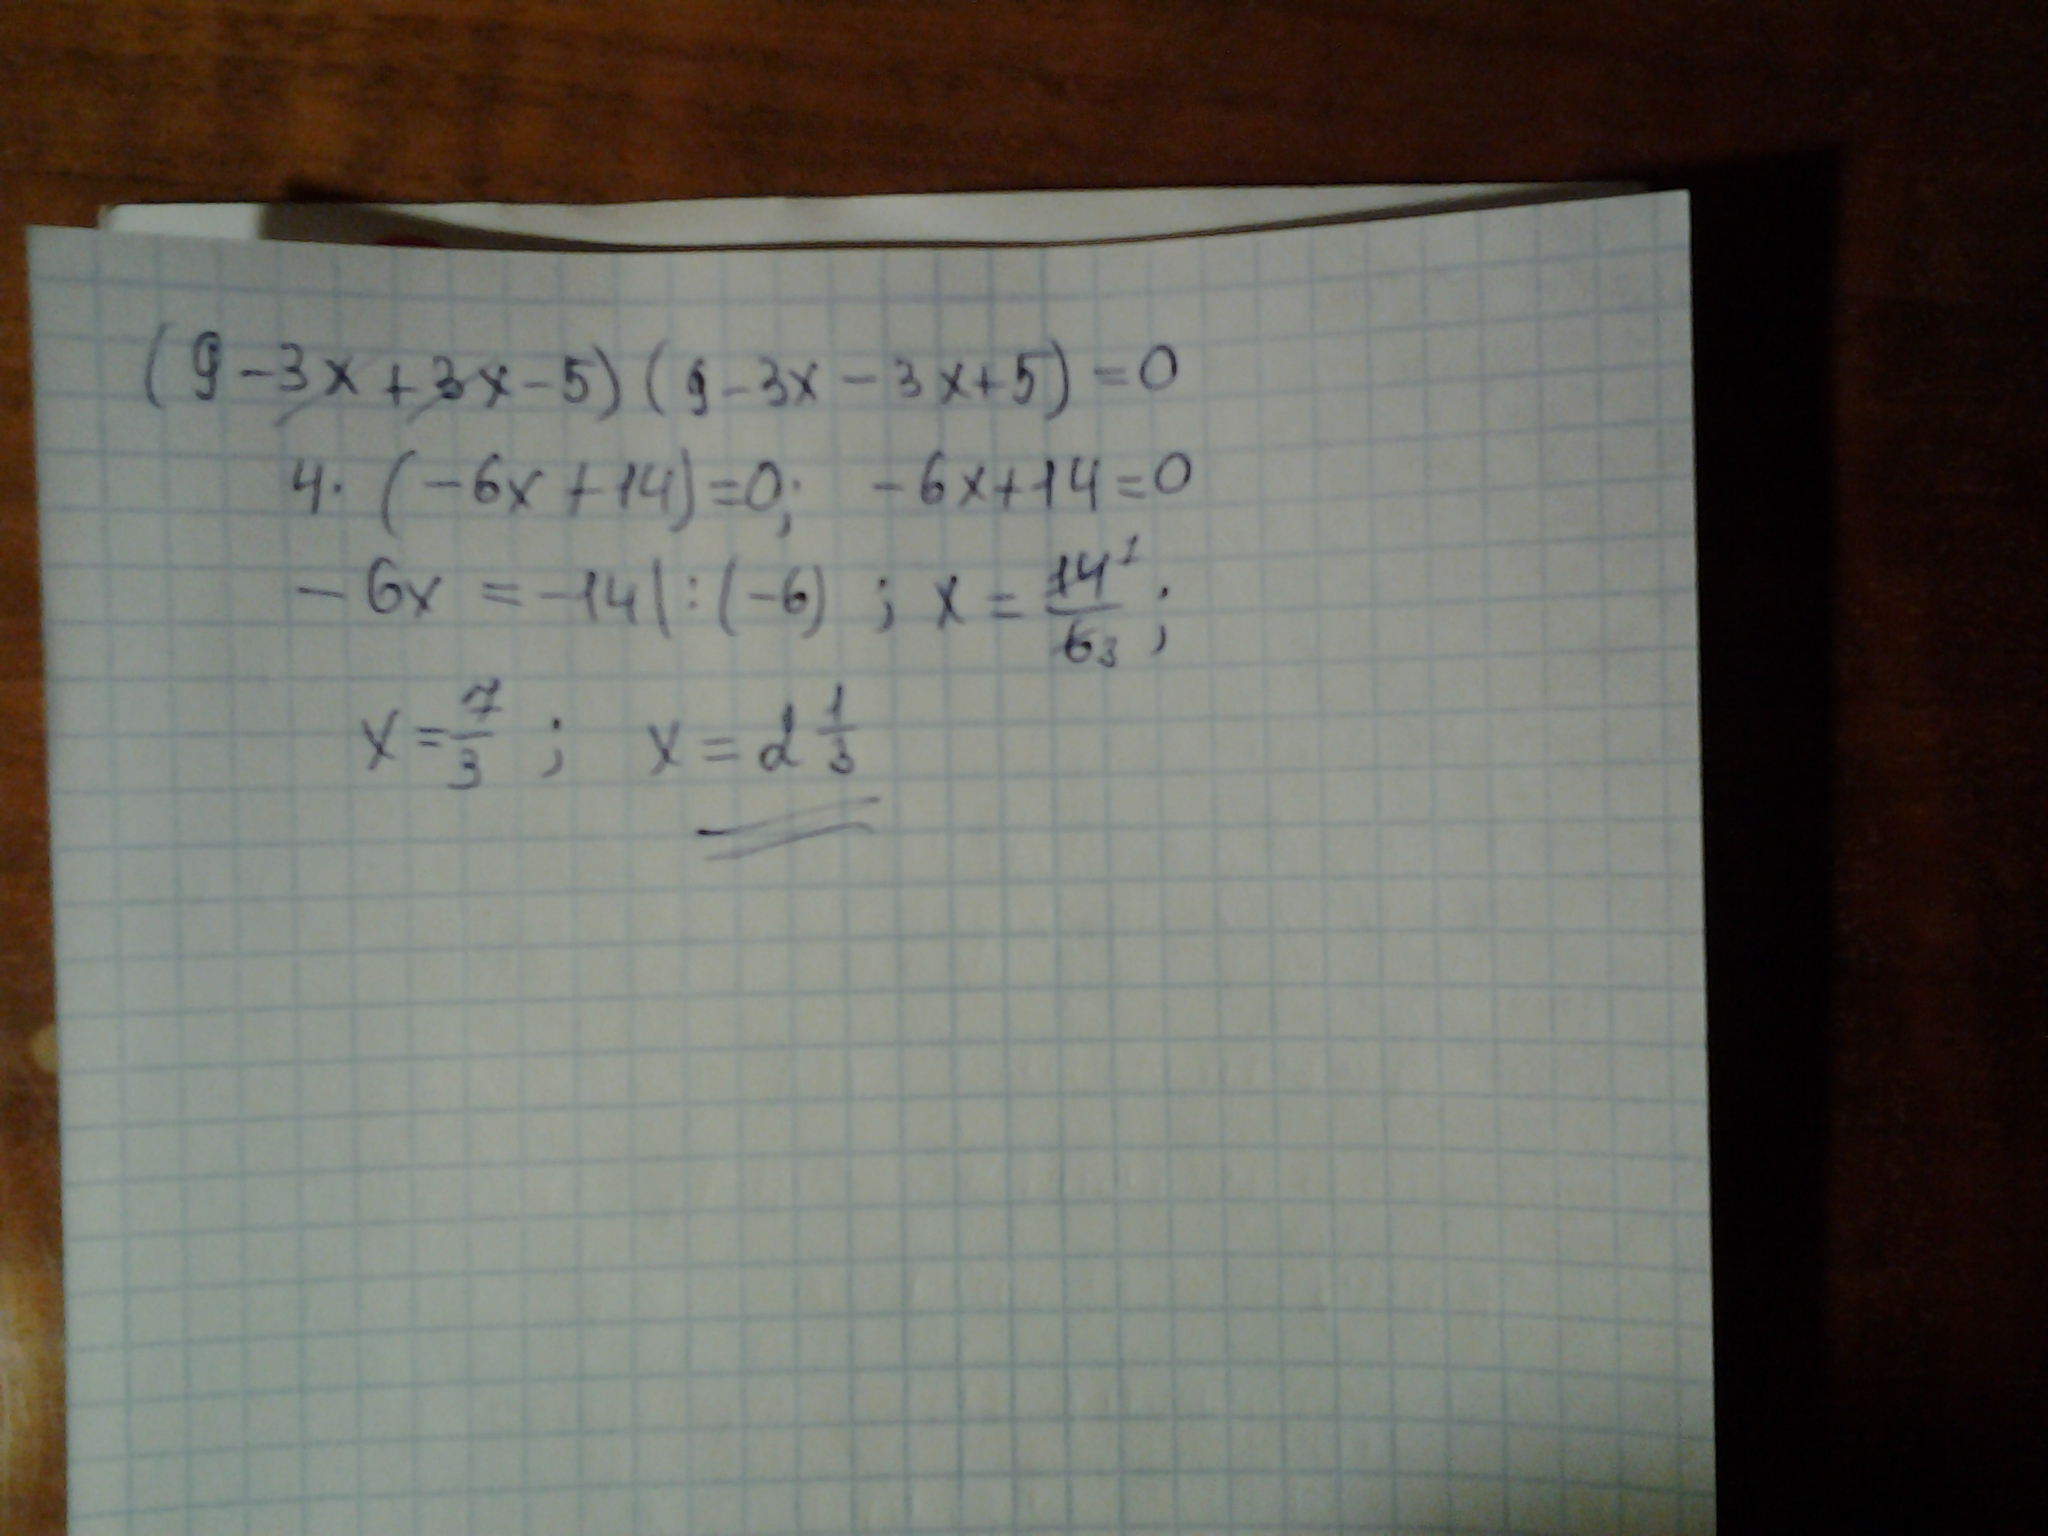 (9-3x+3x-5)(9-3x-3x+5)=0
4·(-6x+14)=0; -6x+14=0
-6x=-14|:(-6); x=\frac{14^{7}}{6_{3}};
x=\frac{7}{3}; x=2\frac{1}{3}